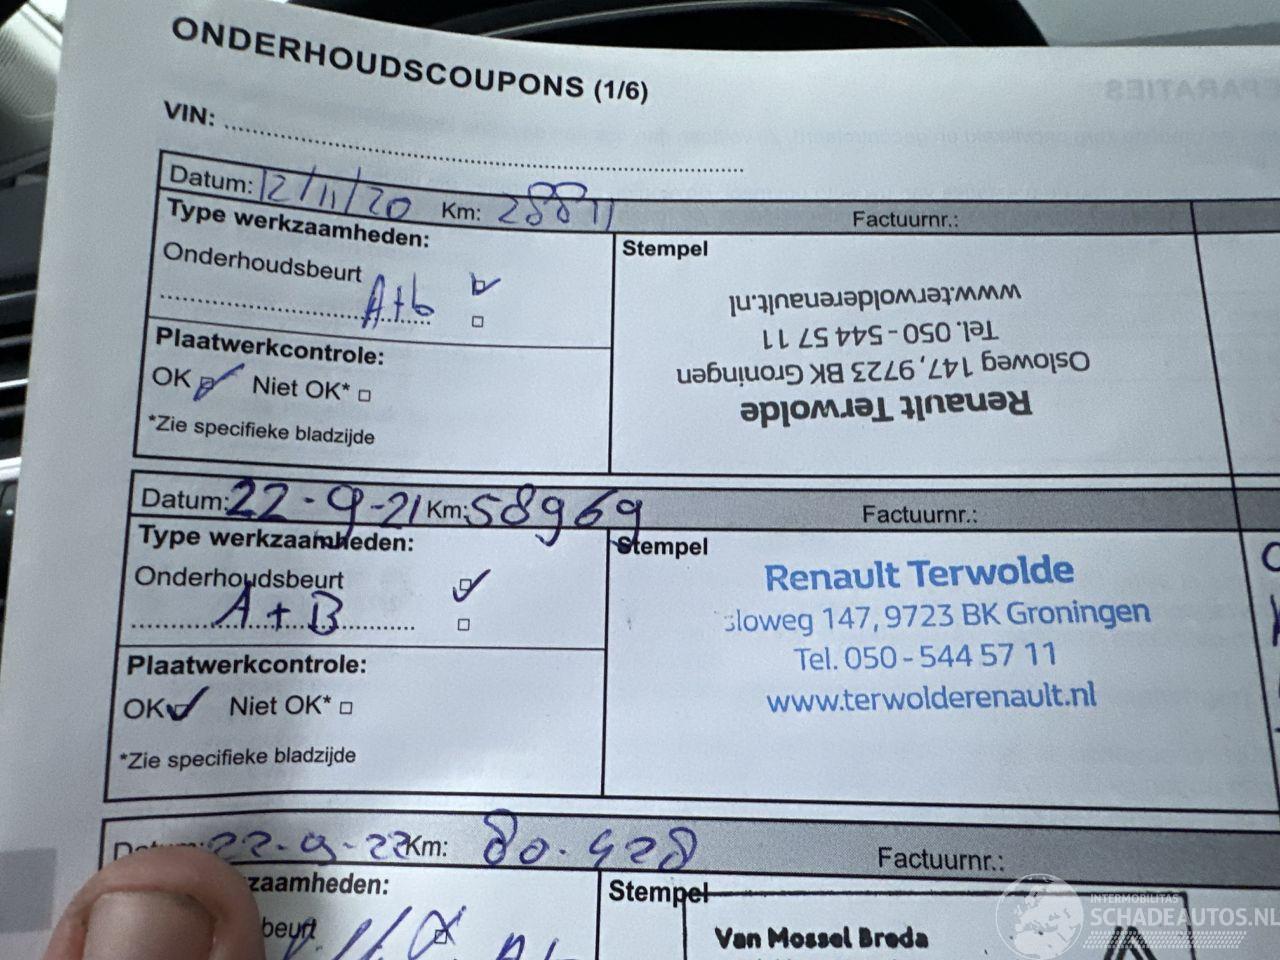 ONDERHOUDSCOUPONS (1/6)
VIN:
Datum: 12/11/20 Km: 28871 Factuurnr.:
Type werkzaamheden:
Onderhoudsbeurt
A+b
Plaatwerkcontrole:
OK Niet OK*
*Zie specifieke bladzijde
Stempel
Renault Terwolde
Osloweg 147, 9723 BK Groningen
Tel. 050 - 544 57 11
www.terwolderenault.nl
Datum: 22-9-21 Km: 58969 Factuurnr.:
Type werkzaamheden:
Onderhoudsbeurt
A+B
Plaatwerkcontrole:
OK Niet OK*
*Zie specifieke bladzijde
Stempel
Renault Terwolde
sloweg 147, 9723 BK Groningen
Tel. 050 - 544 57 11
www.terwolderenault.nl
Datum: 22-9-22 Km: 80.428 Factuurnr.:
zaamheden:
beurt
Stempel
Van Mossel Breda
INTERMOBILITAS
SCHADEAUTOS.NL